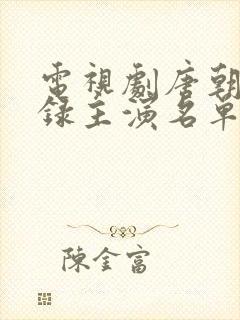 電視劇唐朝
錄主演名單
陳金富